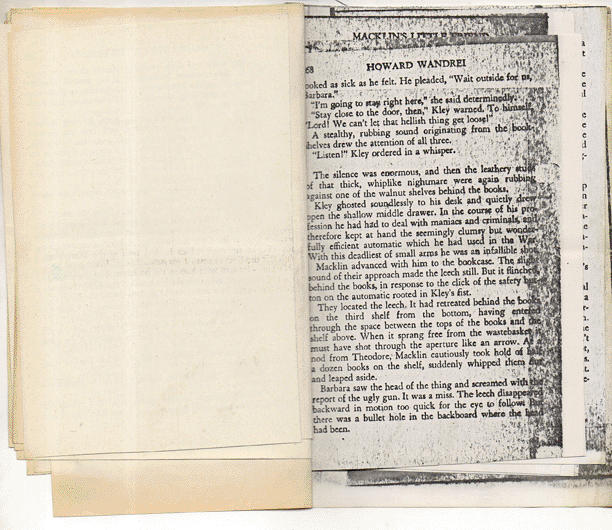 MACKLIN'S LITTLE FRIEND
68
HOWARD WANDREI
ooked as sick as he felt. He pleaded, "Wait outside for us,
Barbara."
"I'm going to stay right here," she said determinedly.
"Stay close to the door, then," Kley warned. To himself,
"Lord! We can't let that hellish thing get loose!"
A stealthy, rubbing sound originating from the book-
shelves drew the attention of all three.
"Listen!" Kley ordered in a whisper.
The silence was enormous, and then the leathery studs
of that thick, whiplike nighumare were again rubbing
against one of the walnut shelves behind the books.
Kley ghosted soundlessly to his desk and quietly drew
open the shallow middle drawer. In the course of his pro-
fession he had had to deal with maniacs and criminals, and
therefore kept at hand the seemingly clumsy but wonder-
fully efficient automatic which he had used in the War.
With this deadliest of small arms he was an infallible shot.
Macklin advanced with him to the bookcase. The slight
sound of their approach made the leech still. But it flinched,
behind the books, in response to the click of the safety but-
ton on the automatic rooted in Kley's fist.
They located the leech. It had retreated behind the books
on the third shelf from the bottom, having entered
through the space between the tops of the books and the
shelf above. When it sprang free from the wastebasket it
must have shot through the aperture like an arrow. At a
nod from Theodore, Macklin cautiously took hold of half
a dozen books on the shelf, suddenly whipped them out
and leaped aside.
Barbara saw the head of the thing and screamed with the
report of the ugly gun. It was a miss. The leech disappeared
backward in motion too quick for the eye to follow. But
there was a bullet hole in the backboard where the head
had been.